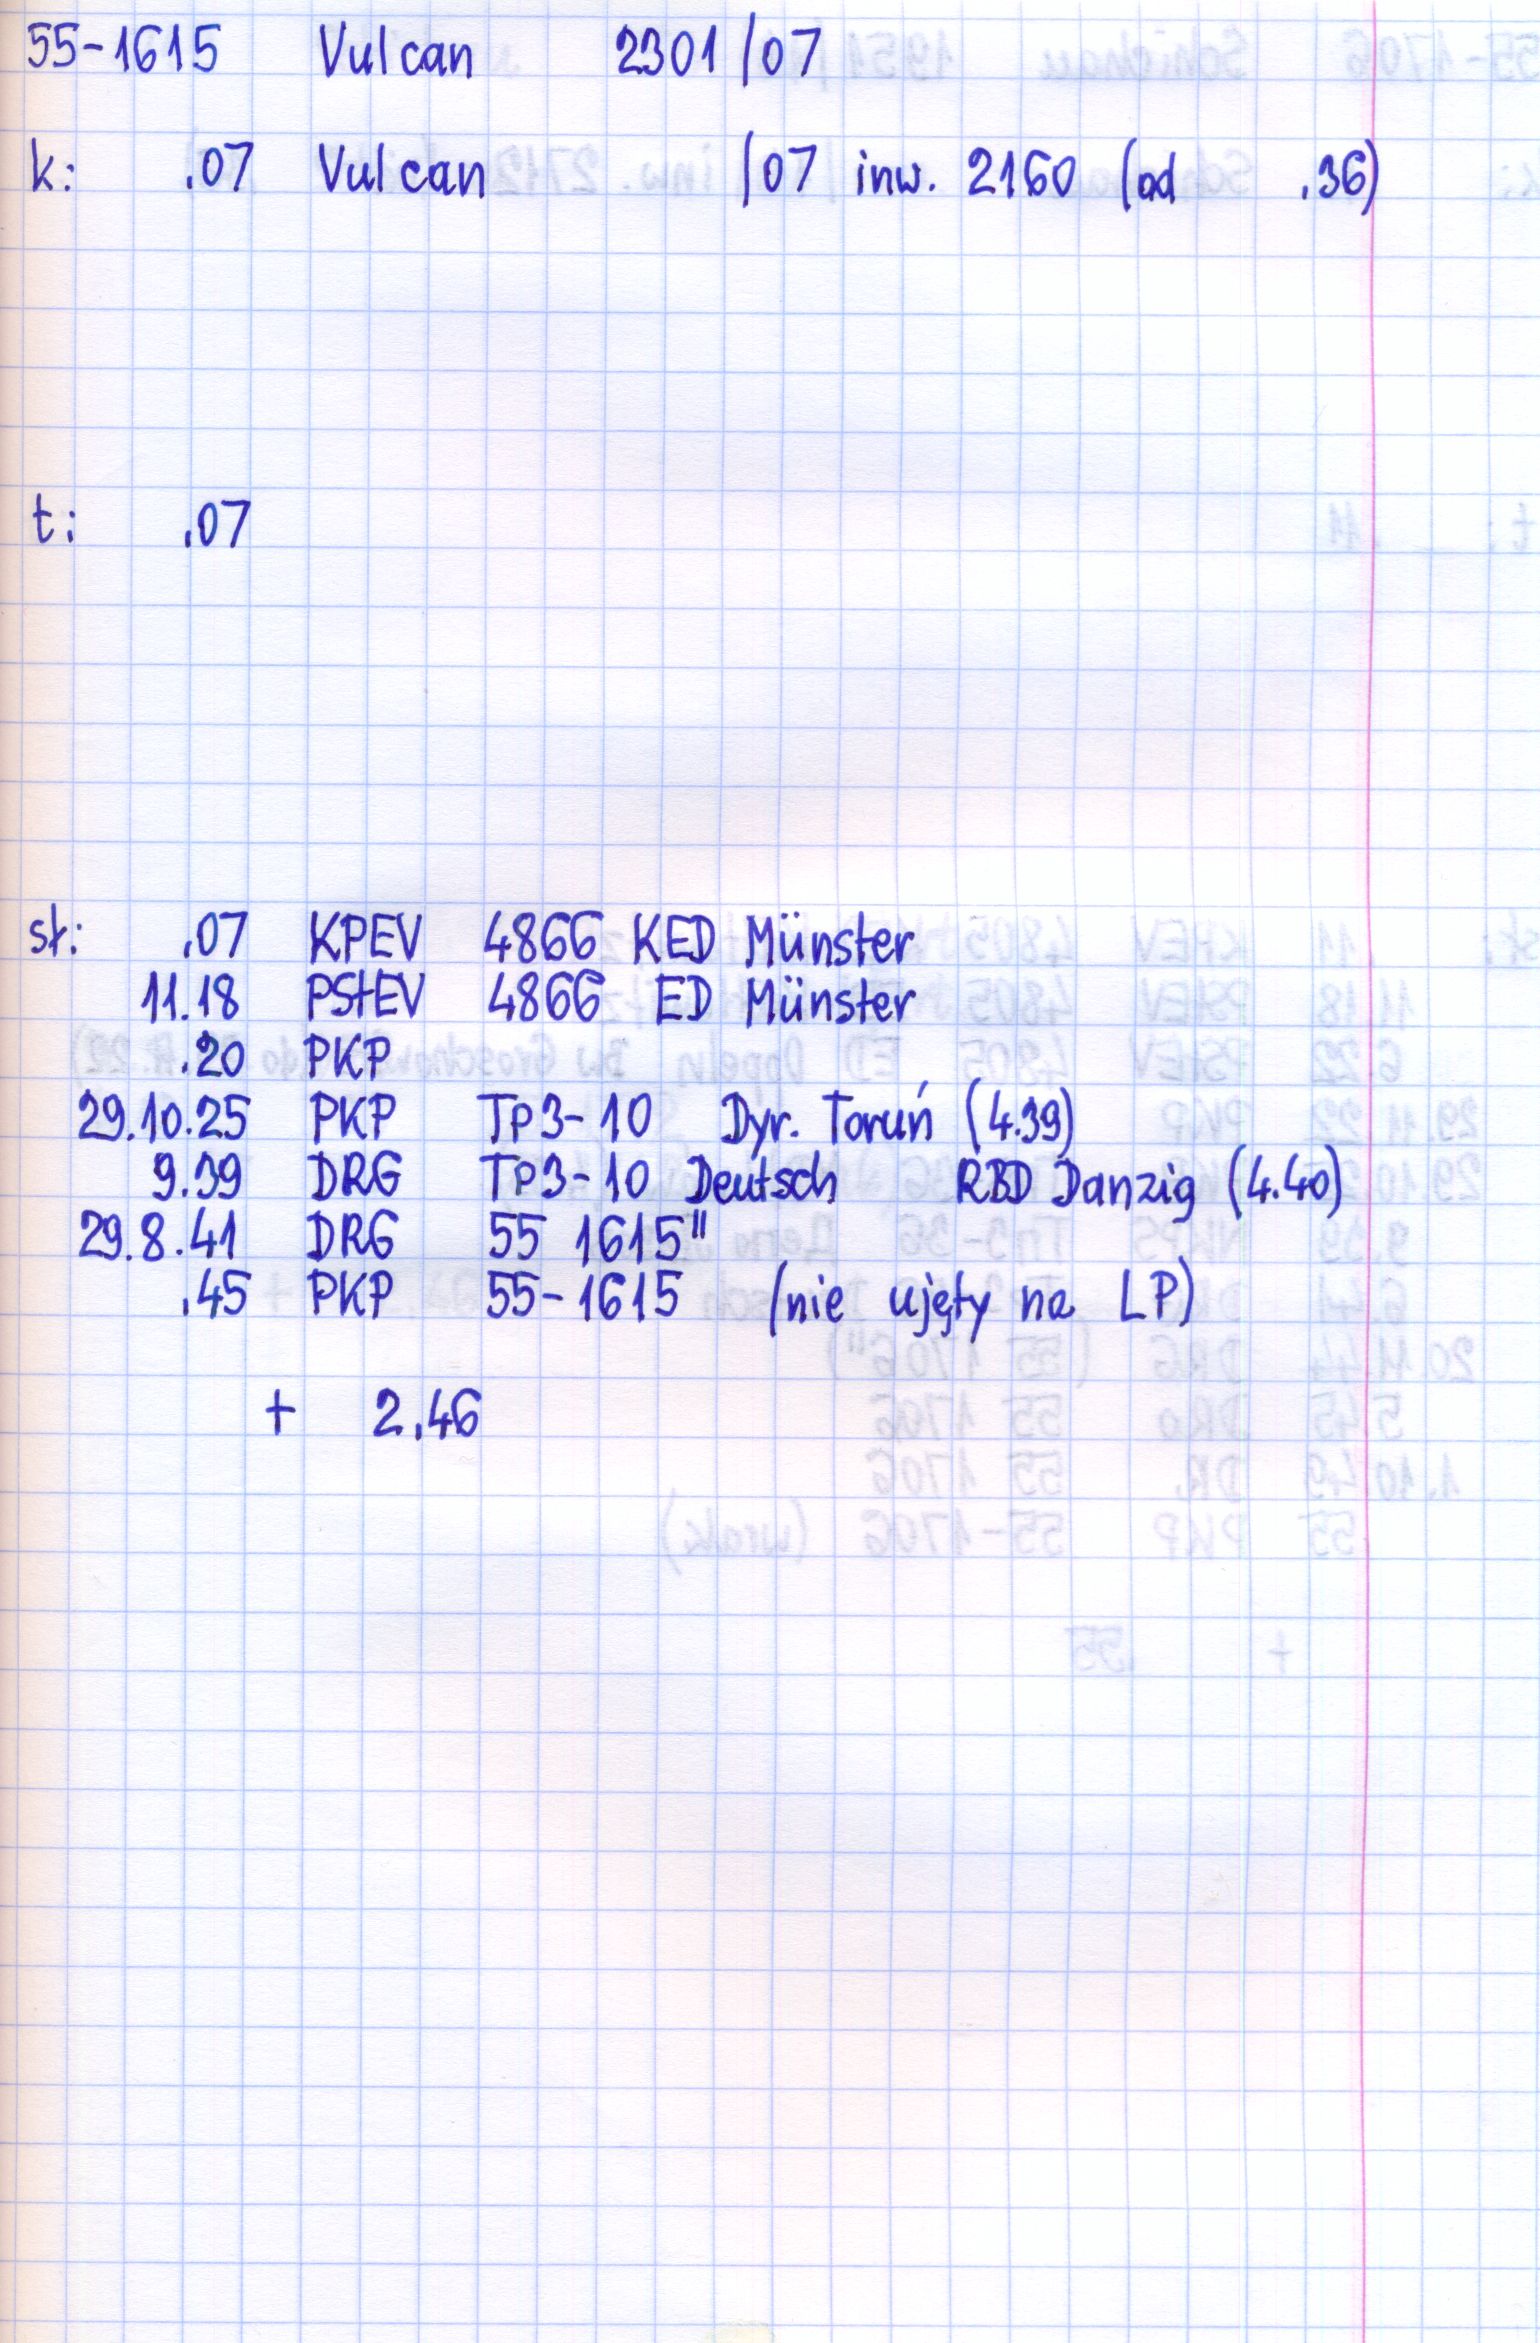 55-1615 Vulcan 2301/07
k: .07 Vulcan /07 inw. 2160 (od .36)
t: .07
st: .07 KPEV 4866 KED Münster
11.18 PStEV 4866 ED Münster
.20 PKP
29.10.25 PKP Tp3-10 Dyr. Toruń (4.39)
9.39 DRG Tp3-10 Deutsch RBD Danzig (4.40)
29.8.41 DRG 55 1615"
.45 PKP 55-1615 (nie ujęty na LP)
+ 2.46